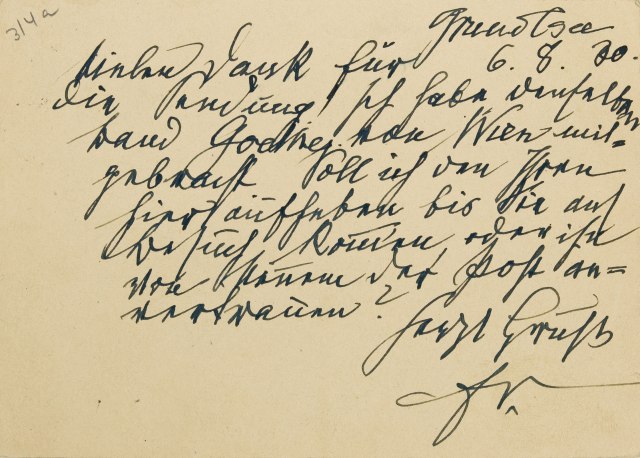 3/4a
Grundlsee
6. 8. 30.
Lieben Dank für
die Sendung Ich habe denselben
Band von Wien mit=
gebracht Soll ich den Ihren
hier aufheben bis Sie auf
Besuch kommen oder ihn
von neuem der Post an=
vertrauen?
Herzl Gruß
Fr.